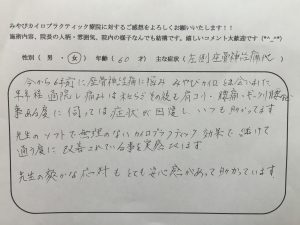 みやびカイロプラクティック療院に対するご感想をよろしくお願いいたします!!
施術内容、院長の人柄・雰囲気、院内の様子なんでも結構です。嬉しいコメント大歓迎です(*^_^*)
性別(男・女) 年齢(60才) 主な症状(左側坐骨神経痛他)
今から6年前に、坐骨神経痛に悩み みやびカイロと出会いました
半年程 通院し 痛みは
その後も 肩コリ・腰痛・ギックリ腰etc
事ある度に 伺っては 症状が回復し いつも助かってます
先生のソフトで無理のない カイロプラクティック 効果で
通う度に 改善されている事を実感しています
先生の爽かな もとても安心感があって助かっています